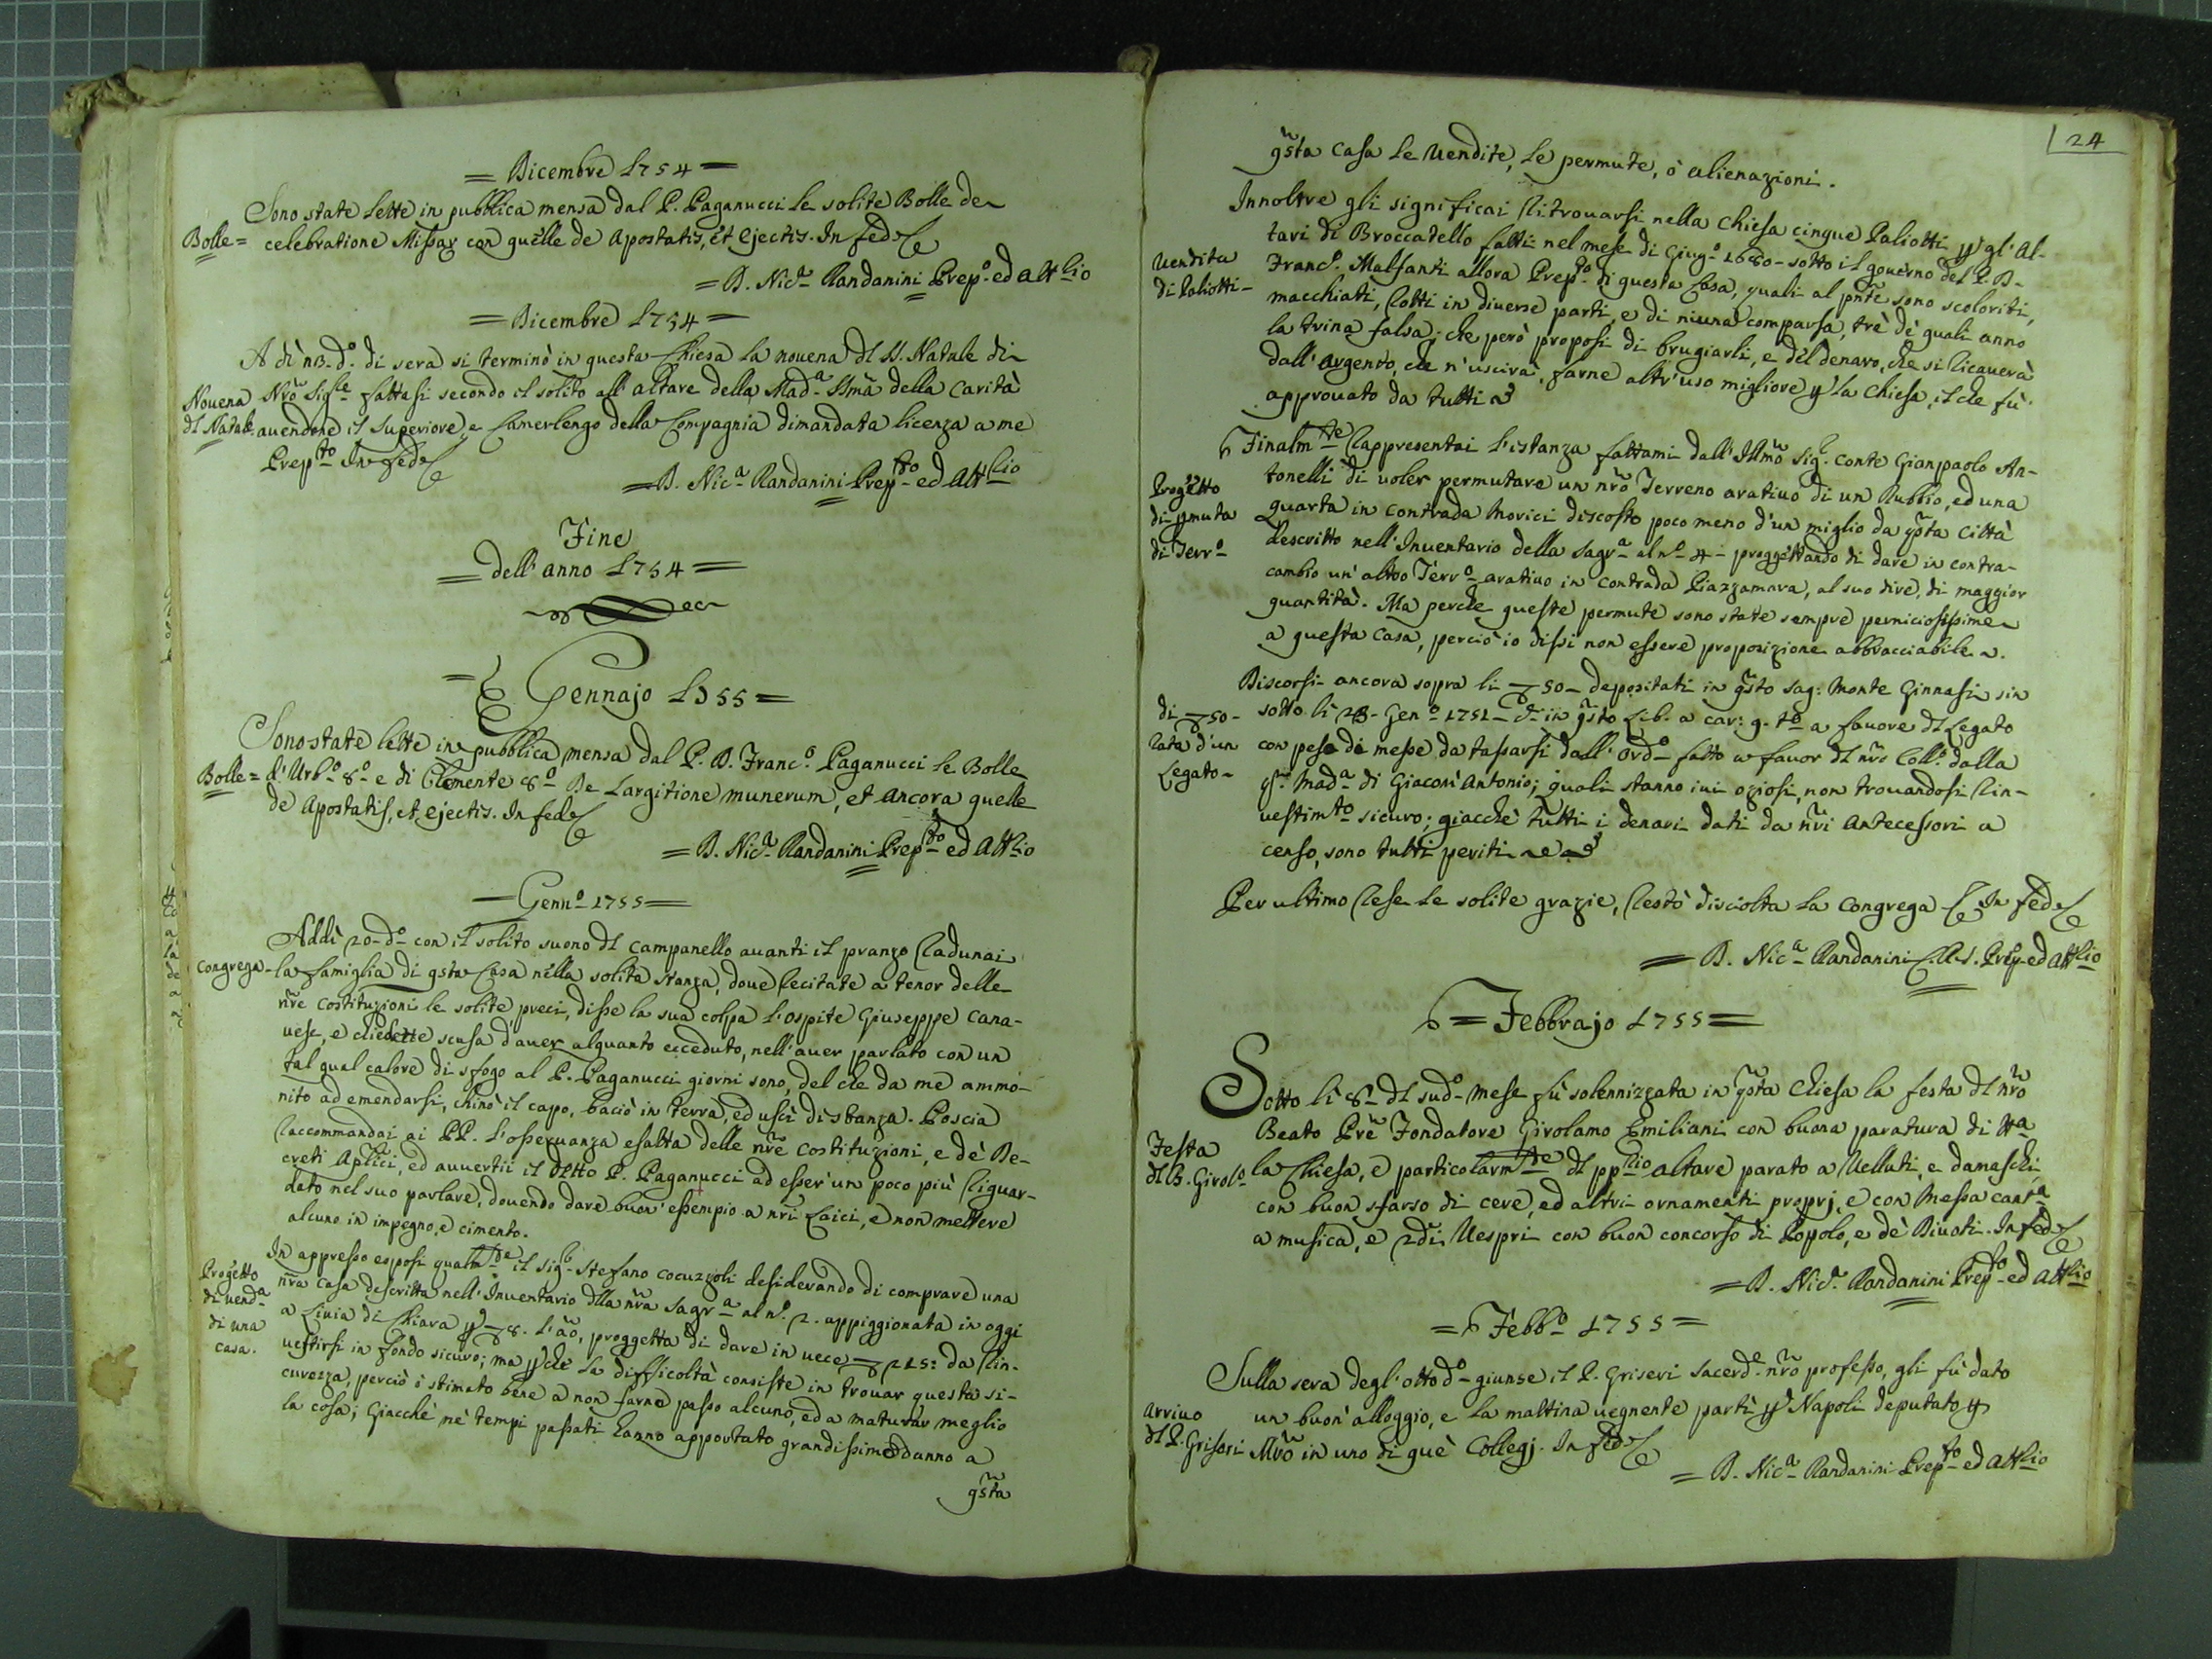 = Dicembre 1754 =
Sono state lette in pubblica mensa dal P. Paganucci le solite Bolle de
Bolle = celebratione Missar con quelle de Apostatis, et ejectis. In fede
= D. Nic.a Randanini Prep.o ed Att.rio
= Dicembre 1754 =
A dì 23 d.o di sera si terminò in questa Chiesa la novena dl SS. Natale di
Novena Nrõ Sig.re fattasi secondo il solito all' altare della Mad.a SSmã della Carità
dl Natale avendone il Superiore, e Camerlengo della Compagnia dimandata licenza a me
Prep.to In fede
= D. Nic.a Randanini Prep.to ed Att.rio
Fine
= dell' anno 1754 =
= Gennajo 1755 =
Sono state lette in pubblica mensa dal P. D. Franc.o Paganucci le Bolle
Bolle = d' Urb.o 8.o e di Clemente 8.o De Largitione munerum, et ancora quelle
de Apostatis, et ejectis. In fede
= D. Nic.a Randanini Prep.to ed Att.rio
= Genn.o 1755 =
Addì 20 d.o con il solito suono dl campanello avanti il pranzo radunai
Congrega - la famiglia di qsta Casa nella solita stanza, dove recitate a tenor delle
nrẽ Costituzioni le solite preci, disse la sua colpa l'ospite Giuseppe Cana-
vese, e chiedette scusa d'aver alquanto ecceduto, nell' aver parlato con un
tal qual calore di sfogo al P. Paganucci giorni sono, del che da me ammo-
nito ad emendarsi, chinò il capo, baciò in terra, ed uscì di stanza. Poscia
raccommandai ai PP. l'osservanza esatta delle nrẽ Costituzioni, e dè De-
creti Aplici, ed avvertii il dtto P. Paganucci ad esser' un poco più riguar-
dato nel suo parlare, dovendo dare buon' essempio a nri Laici, e non mettere
alcuno in impegno, e cimento.
In appresso esposi qualm.te il Sig.r Stefano Cocuzzoli desiderando di comprare una
Progetto nrã casa descritta nell' Inventario dlla nrã Sagr.a al n.o 2. appiggionata in oggi
di vend.a a Livia di Chiara p 8. l' ão, proggetta di dare in vece 215: da rin-
di una vestirsi in fondo sicuro; ma p che la difficoltà consiste in trovar questa si-
casa. curezza, perciò è stimato bene a non farne passo alcuno, ed a maturar meglio
la cosa; Giacchè nè tempi passati hanno apportato grandissimo danno a
qsta
24
qsta casa le vendite, le permute, ò alienazioni.
Innoltre gli significai ritrovarsi nella Chiesa cinque Paliotti p gl' Al-
tari di Broccatello fatti nel mese di Giug.o 1680 - sotto il governo del P. D.
Vendita Franc.o Malsanti allora Prep.to di questa Casa, quali al pñte sono scoloriti,
di Paliotti - macchiati, rotti in diverse parti, e di niuna comparsa, trè dè quali anno
la trina falsa; che però proposi di brugiarli, e del denaro, che si ricaverà
dall' argento, che n' uscirà, farne altr' uso migliore p la Chiesa, il che fù
approvato da tutti
Finalm.te rappresentai l' istanza fattami dall' Illmõ Sig. Conte Gianpaolo An-
Progetto tonelli di voler permutare un nrõ Terreno arativo di un Rubbio, ed una
di pmuta quarta in contrada Morici discosto poco meno d'un miglio da qsta Città
di Terr.o descritto nell' Inventario della Sagr.a al n.o 4 - proggettando di dare in contra-
cambio un' altro Terr.o arativo in contrada Piazzamara, al suo dire, di maggior
quantità. Ma perche queste permute sono state sempre perniciosissime
a questa casa, perciò io dissi non essere proposizione abbracciabile.
Discorsi ancora sopra li 50 - depositati in qsto Sag: Monte Ginnasi sin
di 50 - sotto li 23 - Gen.o 1751 - in qsto Lib. a car: 9. t.o a favore dl Legato
rata d'un con peso di messe da tassarsi dall' Ord.o fatto a favor dl nrõ Coll.o dalla
Legato - Mad.a di Giacom' Antonio; quali stanno ivi oziosi, non trovandosi rin-
vestim.to sicuro; giacchè tutti i denari dati da nri Antecessori a
censo, sono tutti periti
Per ultimo rese le solite grazie, restò disciolta la Congrega In fede
= D. Nic.a Randanini C.R.S. Prep. ed Att.rio
= Febbrajo 1755 =
Sotto li 8 - dl sud.o mese fù solennizzata in qsta Chiesa la festa dl nrõ
Beato Prẽ Fondatore Girolamo Emiliani con buona paratura di tt.a
Festa la Chiesa, e particolarm.te dl pp.lio altare parato a Velluti, e damaschi,
dl B. Girol.o con buon sfarso di cere, ed altri ornamenti proprj, e con Messa cant.a
a musica, e 2di Vespri con buon concorso di Popolo, e dè Divoti. In fede
= D. Nic.a Randanini Prep.to ed Att.rio
= Febb.o 1755 =
Sulla sera degl' otto d.o giunse il P. Griseri Sacerd.e nrõ professo, gli fù dato
Arrivo un buon' alloggio, e la mattina vegnente partì p Napoli deputato p
dl P. Griseri Mrõ in uno di què Collegj. In fede
= D. Nic.a Randanini Prep.to ed Att.rio